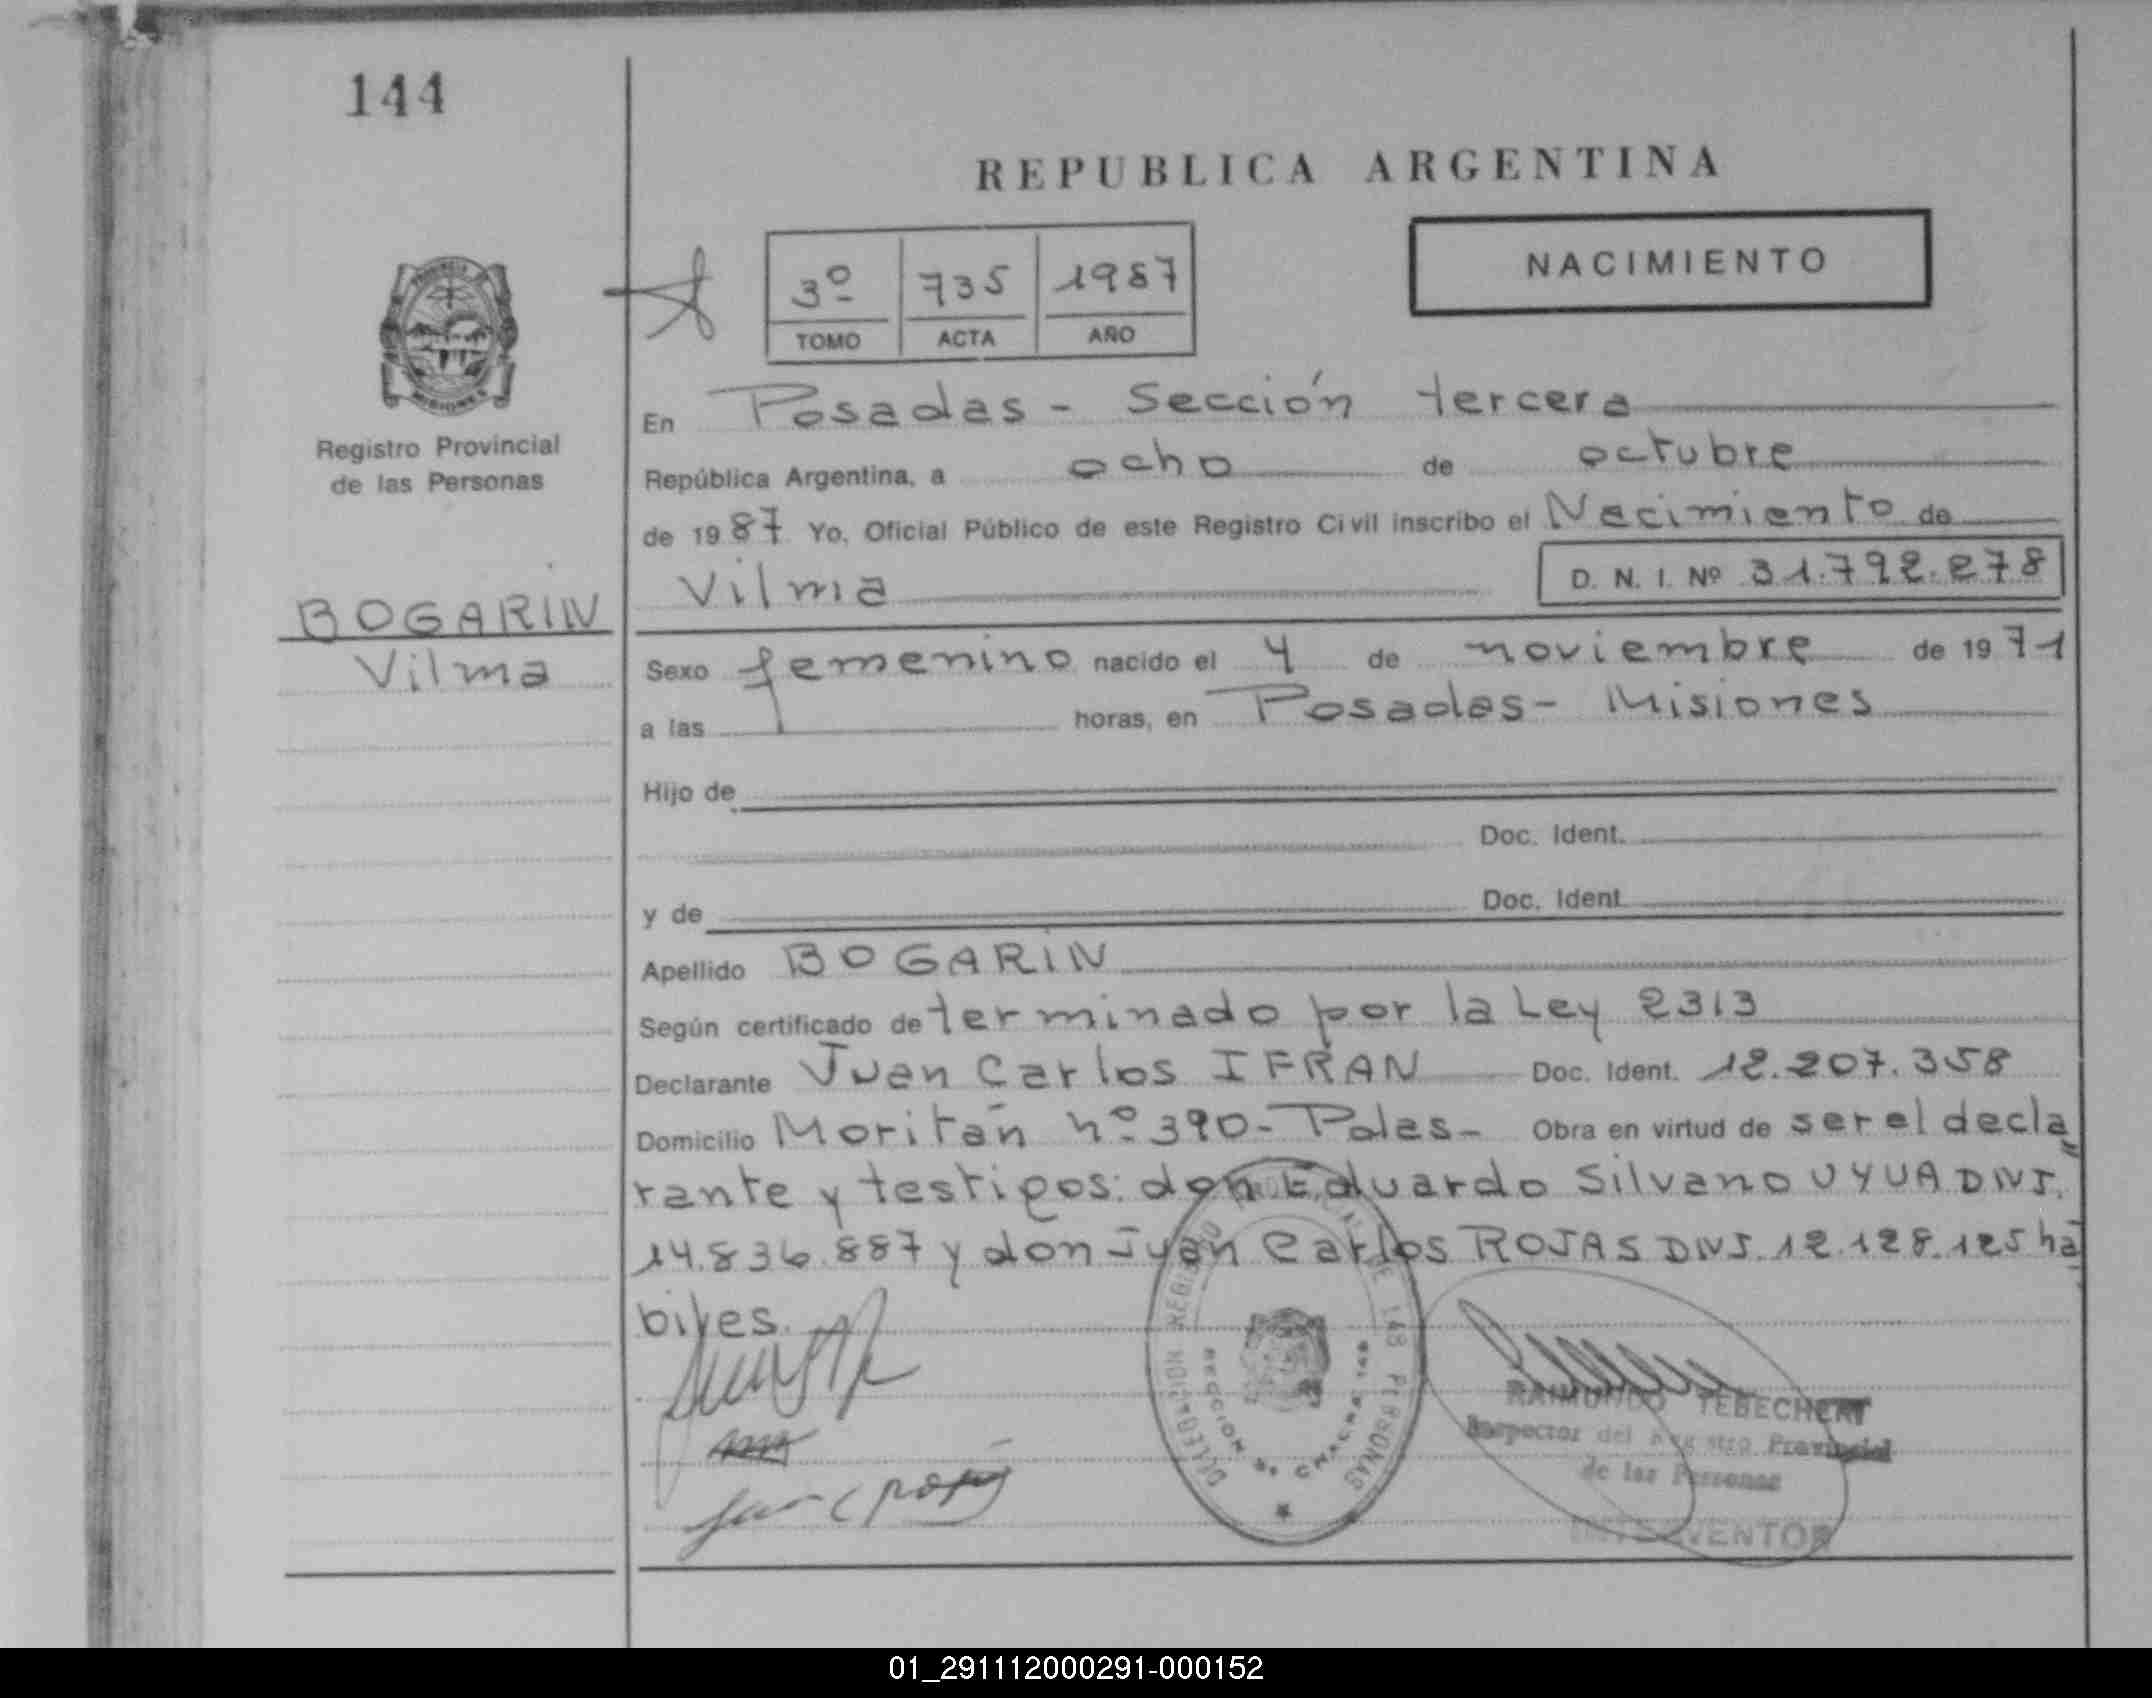 144
REPUBLICA ARGENTINA
NACIMIENTO
3º 735 1987
TOMO ACTA AÑO
MISIONES
Registro Provincial
de las Personas
BOGARIN
Vilma
En Posadas - Sección tercera
República Argentina, a ocho de octubre
de 1987 Yo, Oficial Público de este Registro Civil inscribo el Nacimiento de
Vilma D. N. I. Nº 31.792.278
Sexo femenino nacido el 4 de noviembre de 1971
a las horas, en Posadas - Misiones
Hijo de
Doc. Ident.
y de Doc. Ident.
Apellido BOGARIN
Según certificado determinado por la Ley 2313
Declarante Juan Carlos IFRAN Doc. Ident. 12.207.358
Domicilio Moritán nº 390 - Pdas - Obra en virtud de ser el decla
rante y testigos: don Eduardo Silvano UYUA DNI.
14.836.887 y don Juan Carlos ROJAS DNI. 12.128.125 há
biles.
DELEGACION REGISTRO DE LAS PERSONAS
SECCION 3ª CHACRA
RAIMUNDO TEBECHERT
Inspector del Registro Provincial
de las Personas
INTERVENTOR
01_291112000291-000152